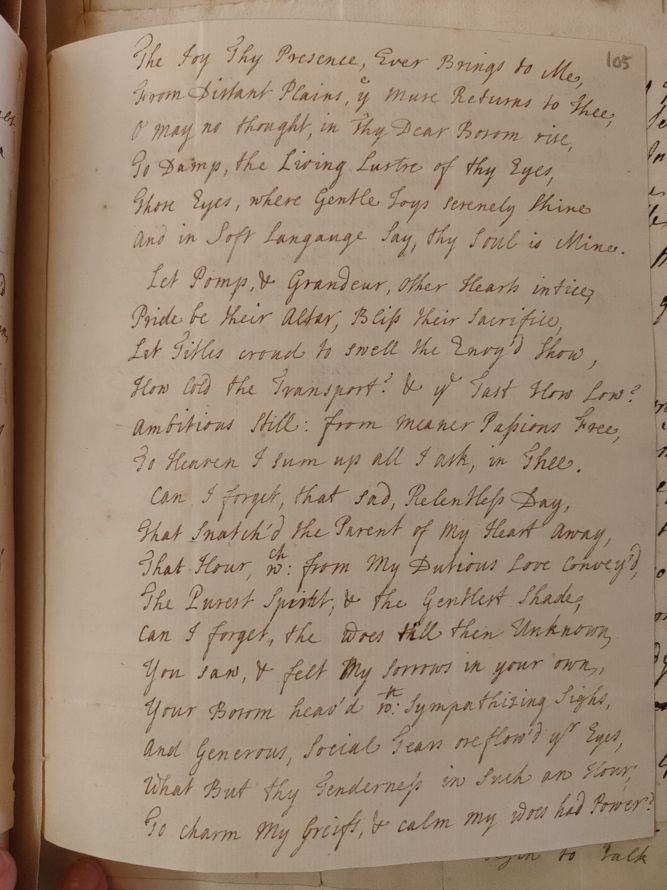 105
The Joy Thy Presence, Ever Brings to Me,
From Distant Plains, yᵉ Muse Returns to Thee,
O may no thought, in Thy Dear Bosom rise,
To Damp, the Living Lustre of thy Eyes,
Those Eyes, where Gentle Joys serenely shine
And in Soft Langauge Say, thy Soul is Mine.
Let Pomp, & Grandeur, other Hearts intice,
Pride be their Altar, Bliss their Sacrifice,
Let Titles croud to swell the Envy'd Show,
How Cold the Transport? & yᵉ Tast How Low?
Ambitious Still: from meaner Passions Free,
To Heaven I sum up all I ask, in Thee.
Can I forget, that sad, Relentless Day,
That Snatch'd the Parent of My Heart Away,
That Hour, wᶜʰ: from My Dutious Love Convey'd,
The Purest Spirit, & the Gentlest Shade,
Can I forget, the Woes till then Unknown,
You saw, & felt My Sorrows in your own,
Your Bosom heav'd wᵗʰ: Sympathizing Sighs,
And Generous, Social Tears oreflow'd yʳ Eyes,
What But thy Tenderness in such an Hour,
To charm My Greifs, & calm my Woes had Power?
to Talk